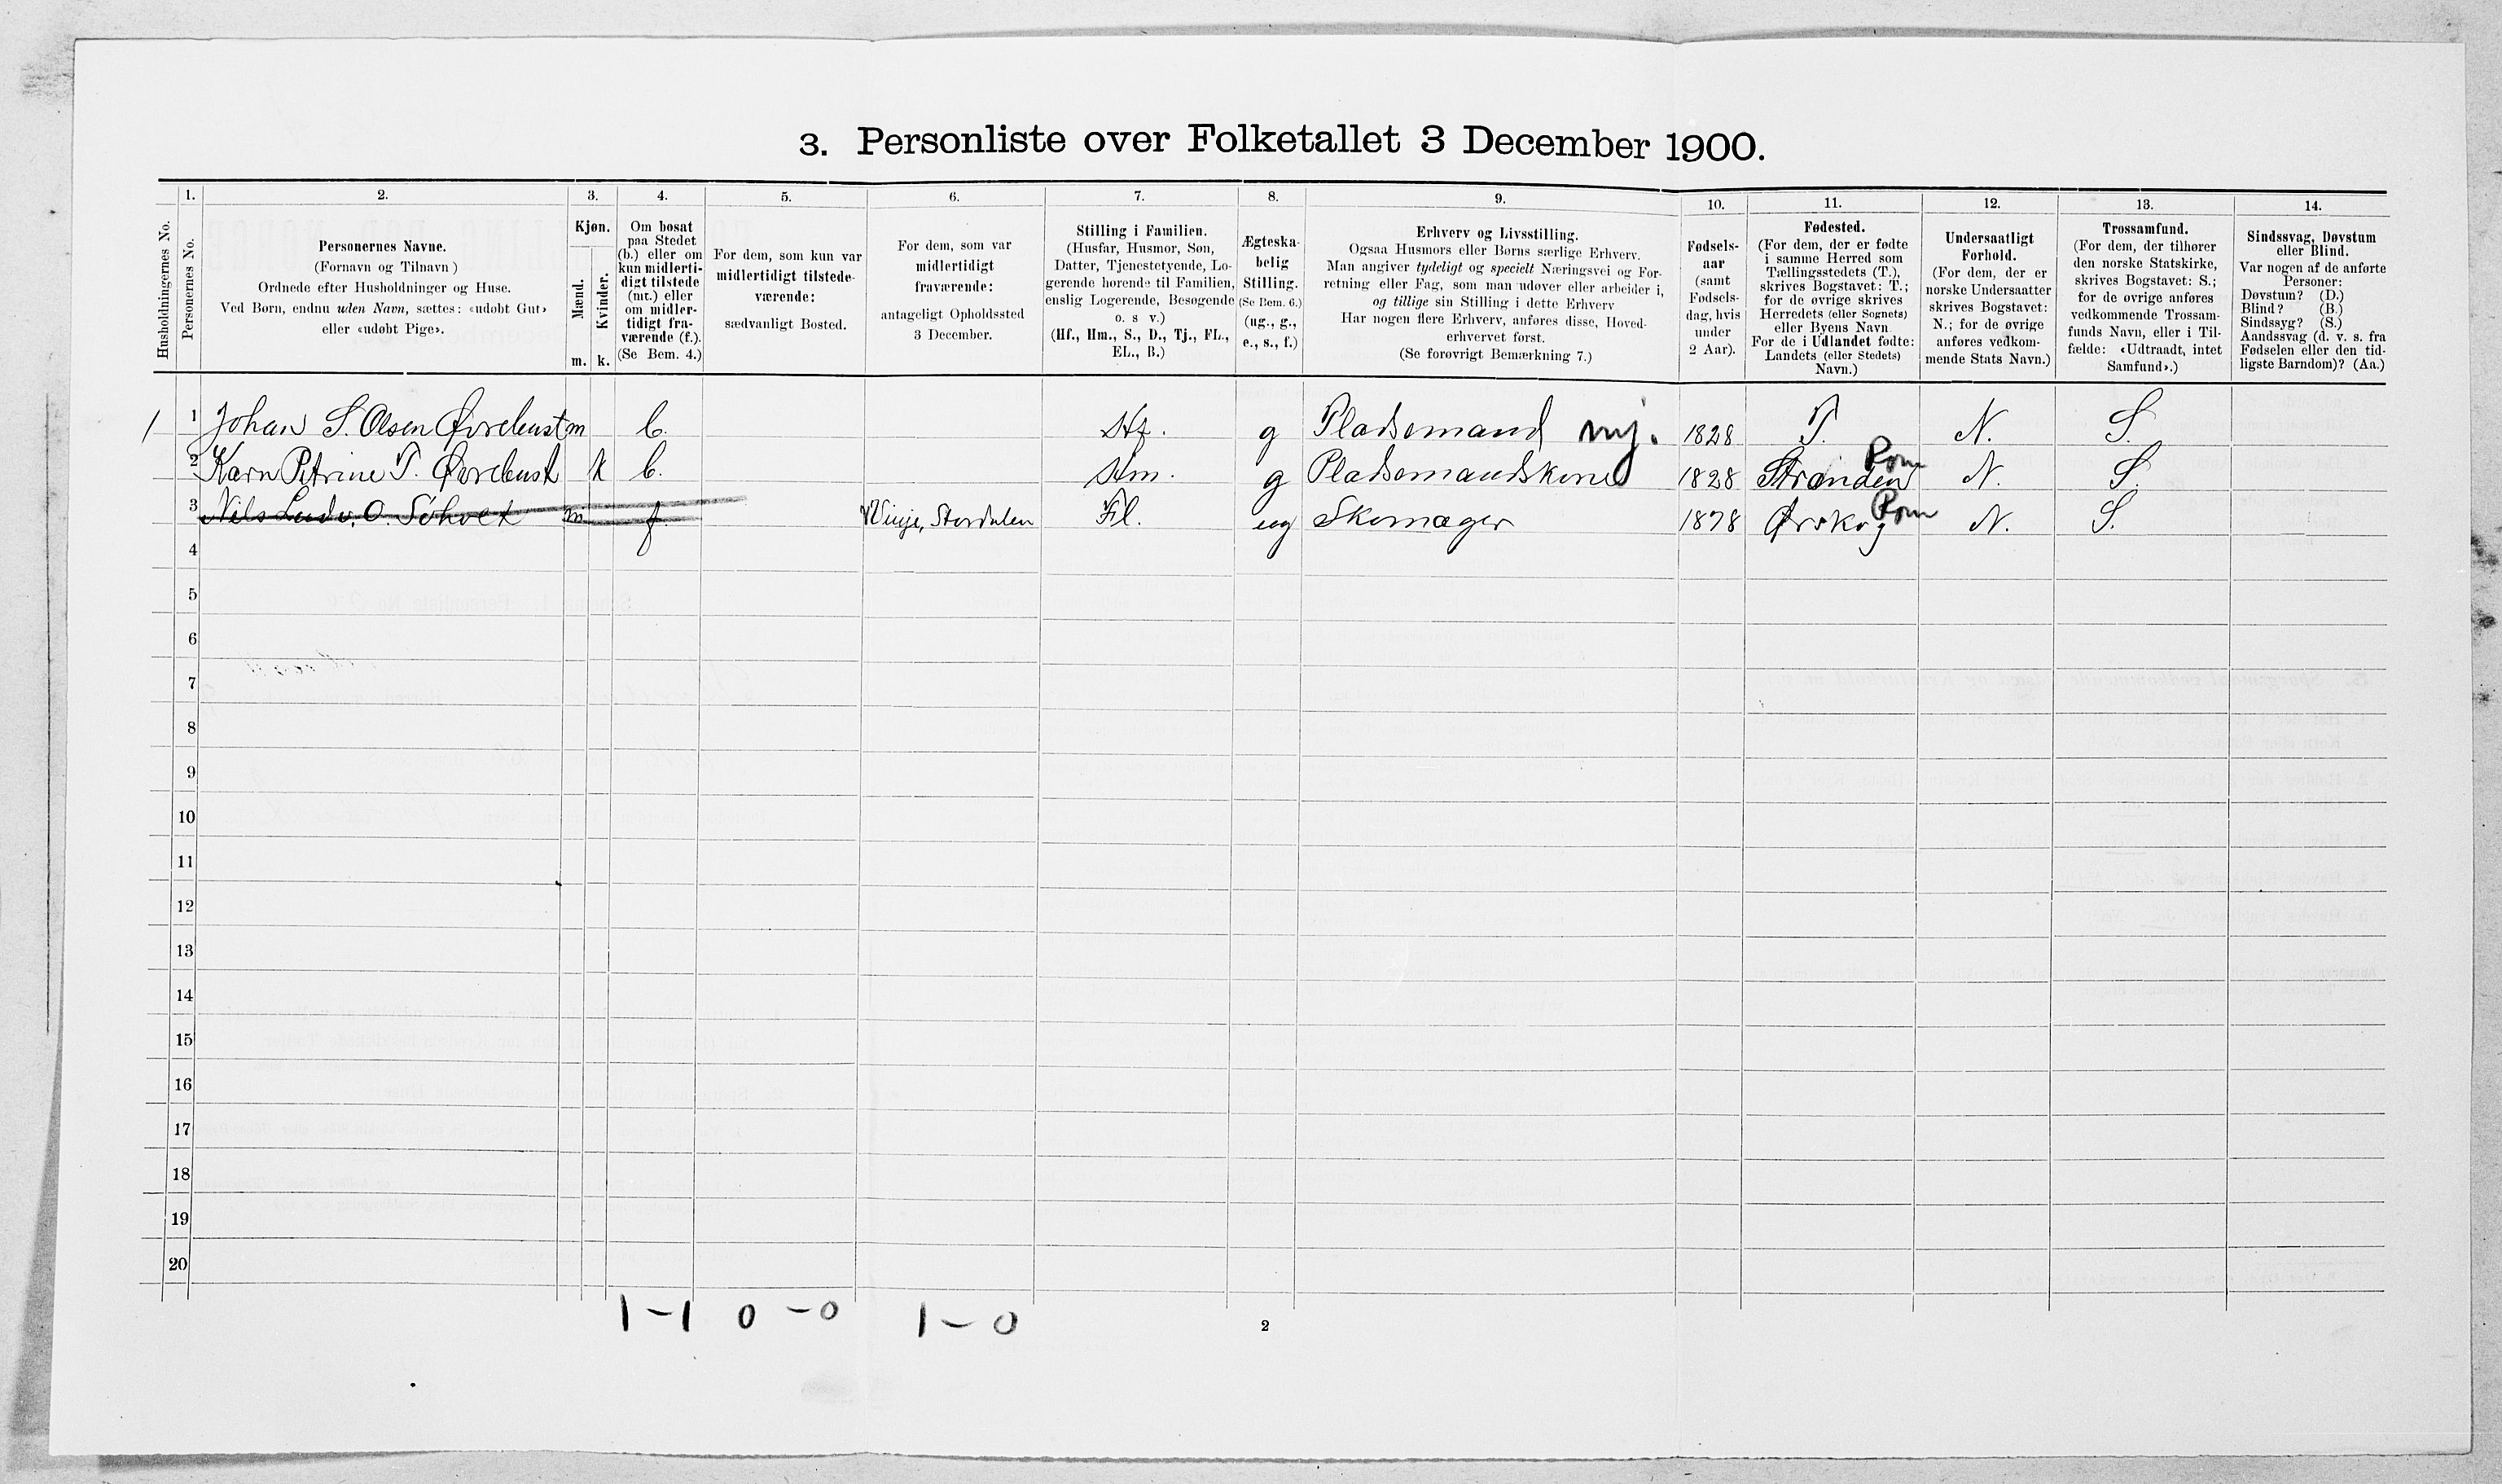 3. Personliste over Folketallet 3 December 1900.
Husholdningernes No.
1. Personernes No.
2. Personernes Navne.
(Fornavn og Tilnavn)
Ordnede efter Husholdninger og Huse.
Ved Børn, endnu uden Navn, sættes: «udøbt Gut»
eller «udøbt Pige».
3. Kjøn.
Mænd. m.
Kvinder. k.
4. Om bosat
paa Stedet
(b.) eller om
kun midlerti-
digt tilstede
(mt.) eller
om midler-
tidigt fra-
værende (f.).
(Se Bem. 4.)
5. For dem, som kun var
midlertidigt tilstede-
værende:
sædvanligt Bosted.
6. For dem, som var
midlertidigt
fraværende:
antageligt Opholdssted
3 December.
7. Stilling i Familien.
(Husfar, Husmor, Søn,
Datter, Tjenestetyende, Lo-
gerende hørende til Familien,
enslig Logerende, Besøgende
o. s v.)
(Hf., Hm., S., D., Tj., FL.,
EL., B.)
8. Ægteska-
belig
Stilling.
(Se Bem. 6.)
(ug., g.,
e., s., f.)
9. Erhverv og Livsstilling.
Ogsaa Husmors eller Børns særlige Erhverv.
Man angiver tydeligt og specielt Næringsvei og For-
retning eller Fag, som man udøver eller arbeider i,
og tillige sin Stilling i dette Erhverv
Har nogen flere Erhverv, anføres disse, Hoved-
erhvervet først.
(Se forøvrigt Bemærkning 7.)
10. Fødsels-
aar
(samt
Fødsels-
dag, hvis
under
2 Aar).
11. Fødested.
(For dem, der er fødte
i samme Herred som
Tællingsstedets (T.),
skrives Bogstavet: T.;
for de øvrige skrives
Herredets (eller Sognets)
eller Byens Navn
For de i Udlandet fødte:
Landets (eller Stedets)
Navn.)
12. Undersaatligt
Forhold.
(For dem, der er
norske Undersaatter
skrives Bogstavet:
N.; for de øvrige
anføres vedkom-
mende Stats Navn.)
13. Trossamfund.
(For dem, der tilhører
den norske Statskirke,
skrives Bogstavet: S.;
for de øvrige anføres
vedkommende Trossam-
funds Navn, eller i Til-
fælde: «Udtraadt, intet
Samfund».)
14. Sindssvag, Døvstum
eller Blind.
Var nogen af de anførte
Personer:
Døvstum? (D.)
Blind? (B.)
Sindssyg? (S.)
Aandssvag (d. v. s. fra
Fødselen eller den tid-
ligste Barndom)? (Aa.)
1 1 Johan S. Olsen Øvrebust m b. Hf. g Pladsemand nij. 1828 T. N. S.
2 Karn Petrine T. Øvrebust k b. Hm. g Pladsemandskone 1828 Stranden Rom N. S.
3 Nils Ludv. O. m f Vinje, Stordalen Fl. ug Skomager 1878 Ørskog Rom N. S.
4
5
6
7
8
9
10
11
12
13
14
15
16
17
18
19
20
1-1 0-0 1-0
2